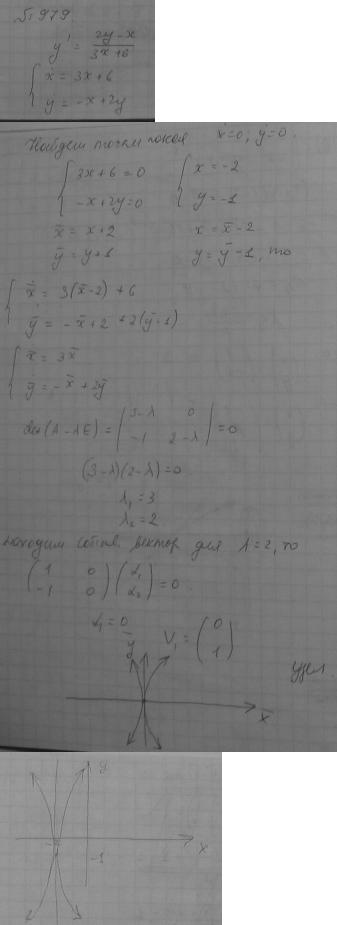 № 979.
y' = \frac{2y-x}{3x+6}
{ ẋ = 3x+6
ẏ = -x+2y
Найдем точки покоя ẋ=0, ẏ=0.
{ 3x+6=0 { x=-2
-x+2y=0 y=-1
x̄ = x+2 x = x̄-2
ȳ = y+1 y = ȳ-1, то
{ ẋ = 3(x̄-2)+6
ẏ = -x̄+2+2(ȳ-1)
{ ẋ = 3x̄
ẏ = -x̄+2ȳ
det(A-λE) = | 3-λ 0 | = 0
| -1 2-λ |
(3-λ)(2-λ)=0
λ₁=3
λ₂=2
Находим собств. вектор для λ=2, то
( 1 0 ) ( α₁ ) = 0.
( -1 0 ) ( α₂ )
α₁=0
V₁ = ( 0
1 )
узел
ȳ
x̄
y
x
-1